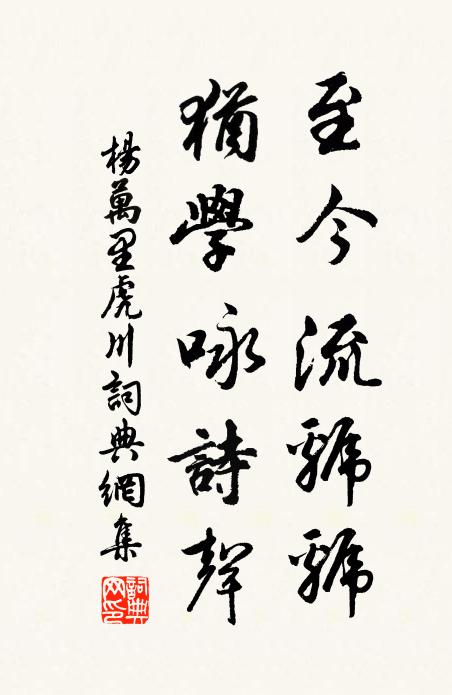 至今流虢虢
猶學咏詩聲
楊萬里虎川詞典網集
詞典网印